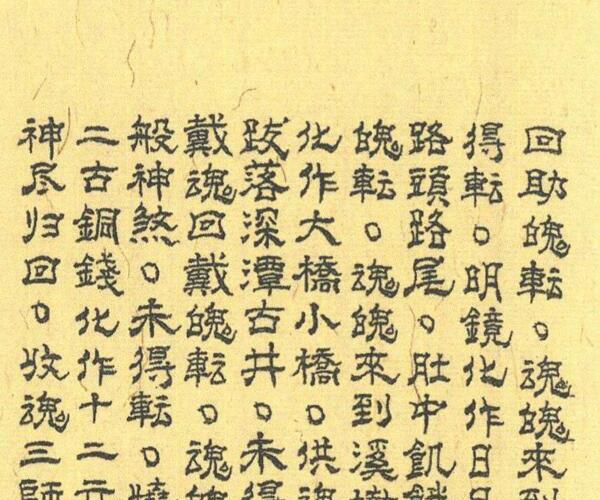 回助魄転。魂魄來到
得転。明鏡化作日
路頭路尾。肚中飢
魄転。魂魄來到溪
化作大橋小橋。供魂
跋落深潭古井。未得
戴魂回戴魄転。魂魄
般神煞。未得転。燒
二古銅錢化作十二元
神尽归回。收魂三師